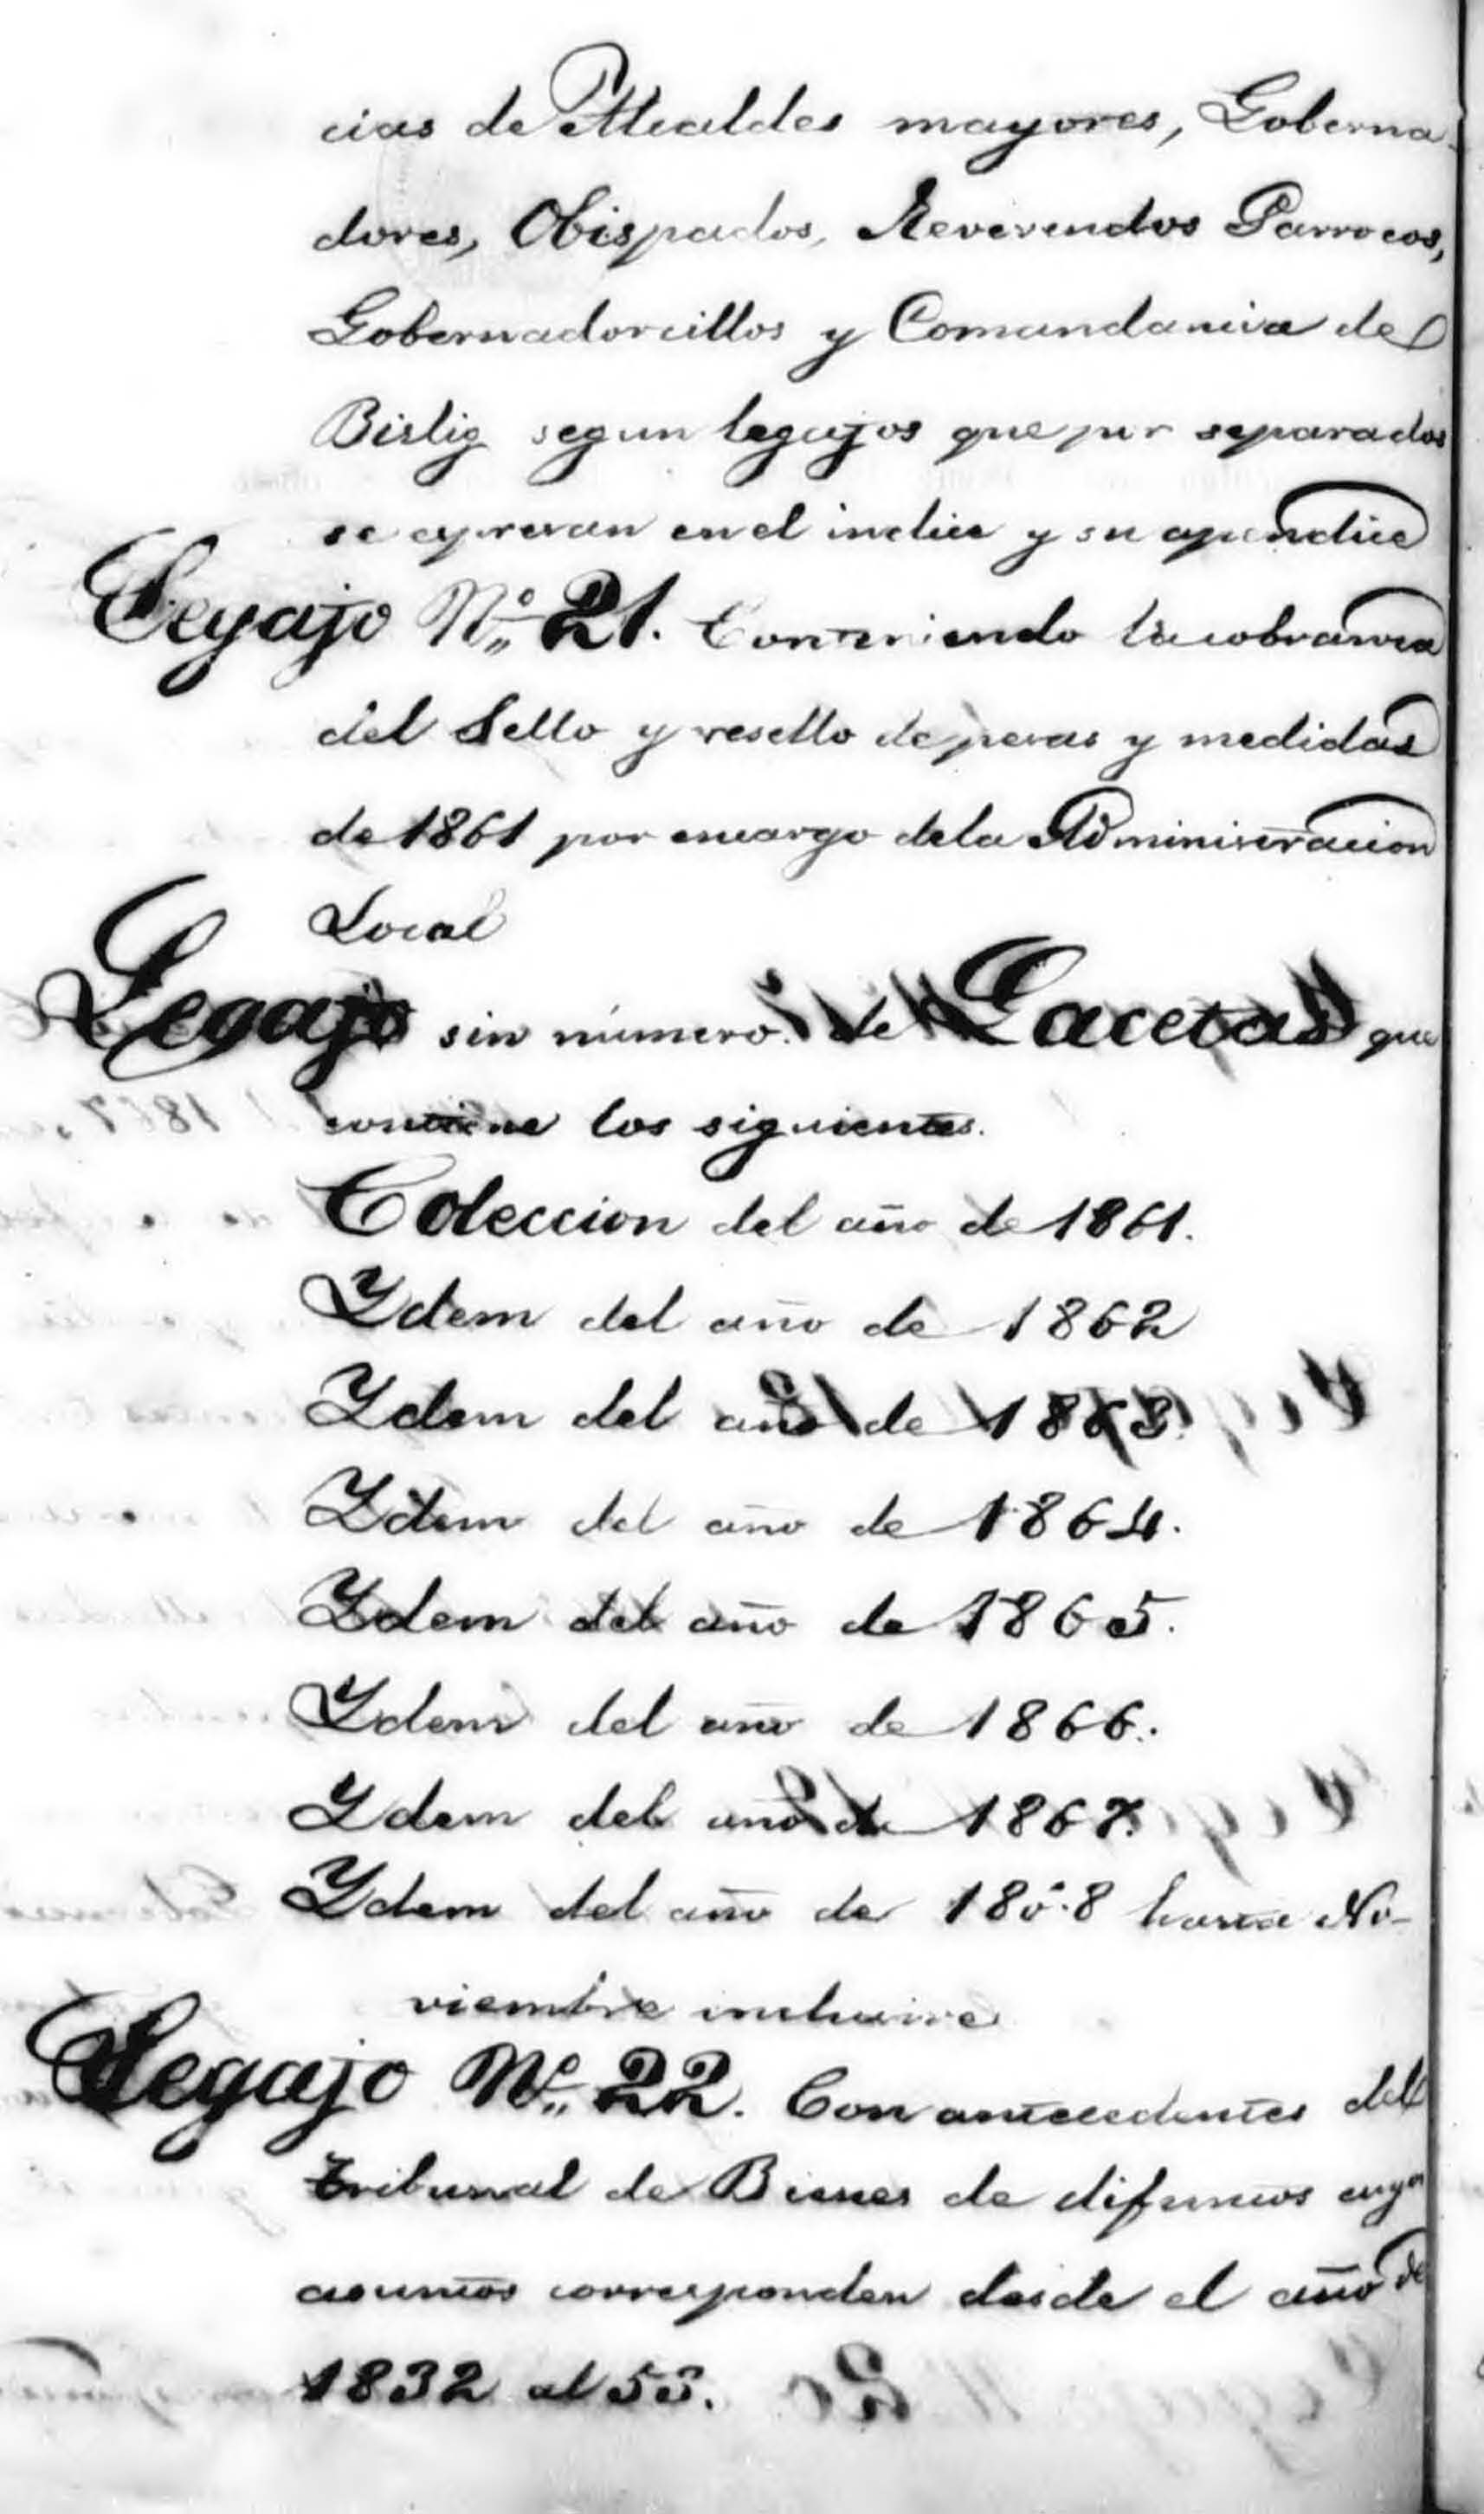 cias de Alcaldes mayores, Goberna-
dores, Obispados, Reverendos Parrocos,
Gobernadorcillos y Comandancia de
Bislig segun legajos que por separados
se espresan en el indice y su apendice
Legajo Nº 21. Conteniendo la cobranza
del Sello y resello de pesas y medidas
de 1861 por encargo de la Administracion
Local
Legajo sin número. de Gacetas que
contiene los siguientes.
Coleccion del año de 1861.
Ydem del año de 1862
Ydem del año de 1863.
Ydem del año de 1864.
Ydem del año de 1865.
Ydem del año de 1866.
Ydem del año de 1867.
Ydem del año de 1868 hasta No-
viembre inclusive
Legajo Nº 22. Con antecedentes del
tribunal de Bienes de difuntos cuyos
asuntos corresponden desde el año de
1832 al 53.